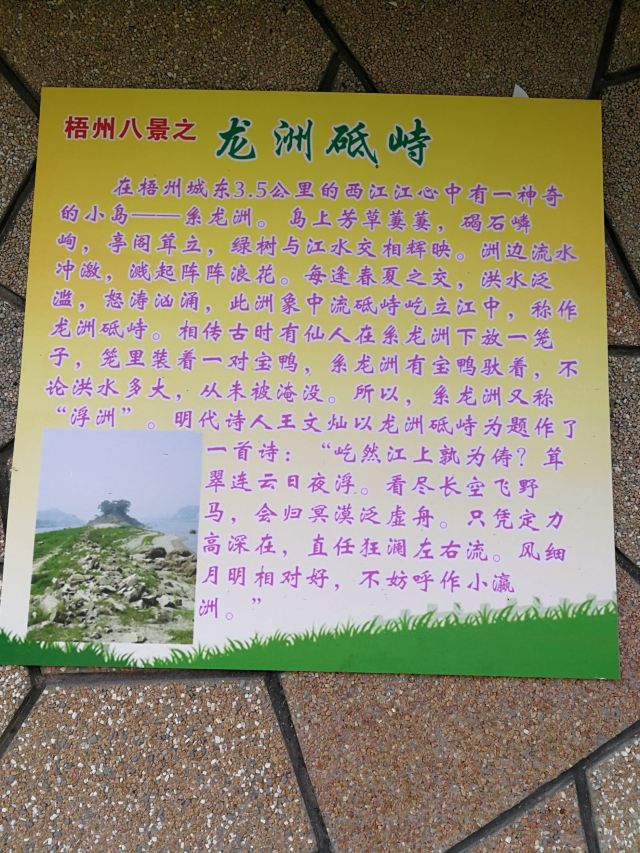 梧州八景之 龙洲砥峙
在梧州城东3.5公里的西江江心中有一神奇
的小岛——系龙洲。岛上芳草萋萋,碣石嶙
峋,亭阁茸立,绿树与江水交相辉映。洲边流水
冲激,溅起阵阵浪花。每逢春夏之交,洪水泛
滥,怒涛汹涌,此洲象中流砥峙屹立江中,称作
龙洲砥峙。相传古时有仙人在系龙洲下放一笼
子,笼里装着一对宝鸭,系龙洲有宝鸭驮着,不
论洪水多大,从未被淹没。所以,系龙洲又称
“浮洲”。明代诗人王文灿以龙洲砥峙为题作了
一首诗:“屹然江上孰为俦?茸
翠连云日夜浮。看尽长空飞野
马,会归冥漠泛虚舟。只凭定力
高深在,直任狂澜左右流。风细
月明相对好,不妨呼作小瀛
洲。”